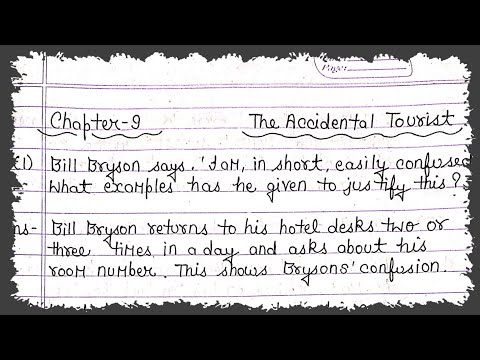 Page:
Chapter-9 The Accidental Tourist
1) Bill Bryson says. 'I am, in short, easily confused
What examples has he given to justify this?
ns- Bill Bryson returns to his hotel desks two or
three times in a day and asks about his
room number. This shows Brysons' confusion.